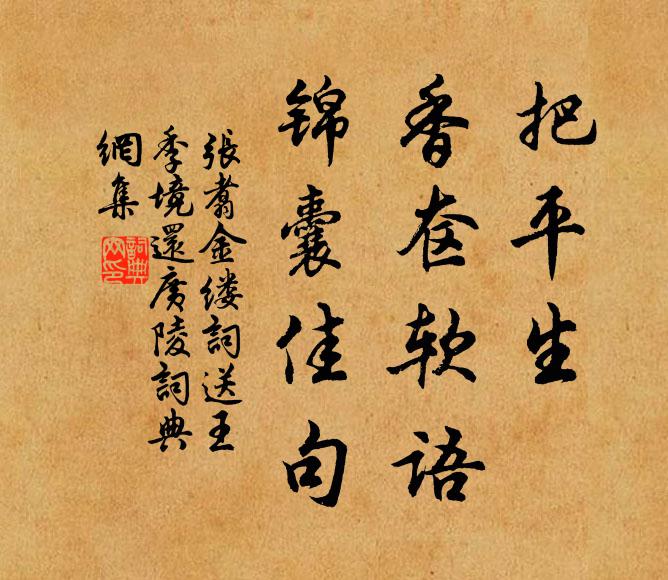 把平生
香奁软语
锦囊佳句
張翥金缕詞送王
季境還廣陵詞典
網集
詞典
网印